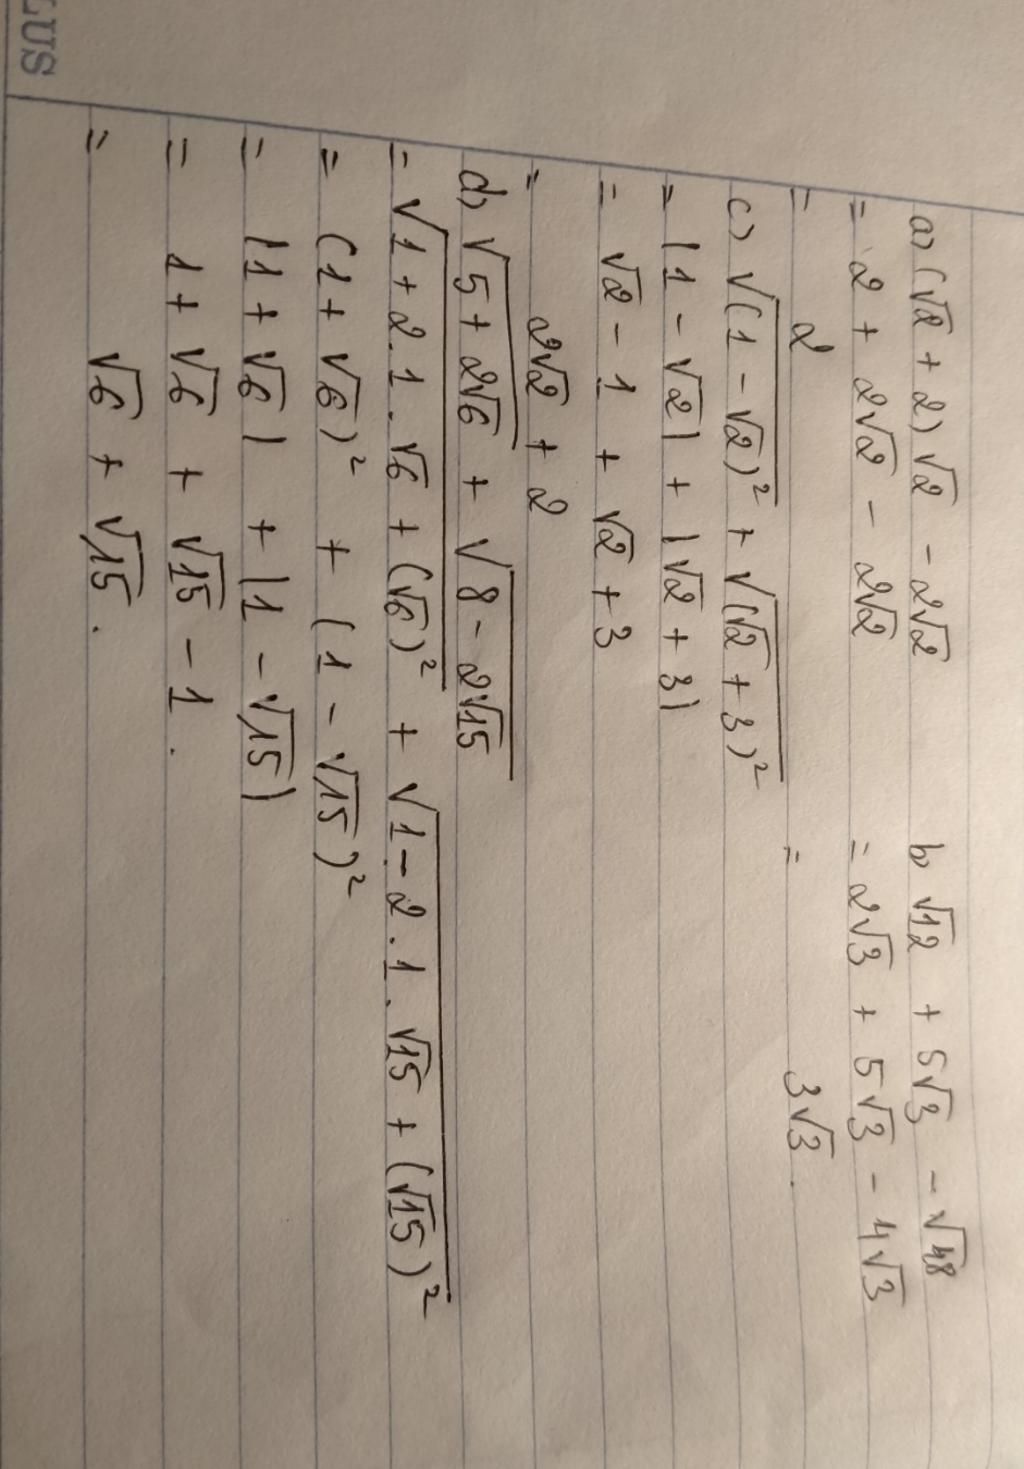 a) (√2 + 2)√2 - 2√2
= 2 + 2√2 - 2√2
= 2
b) √12 + 5√3 - √48
= 2√3 + 5√3 - 4√3
= 3√3.
c) √(1 - √2)² + √(√2 + 3)²
= |1 - √2| + |√2 + 3|
= √2 - 1 + √2 + 3
= 2√2 + 2
d) √5 + 2√6 + √8 - 2√15
= √1 + 2.1.√6 + (√6)² + √1 - 2.1.√15 + (√15)²
= (1 + √6)² + (1 - √15)²
= |1 + √6| + |1 - √15|
= 1 + √6 + √15 - 1.
= √6 + √15.
LUS